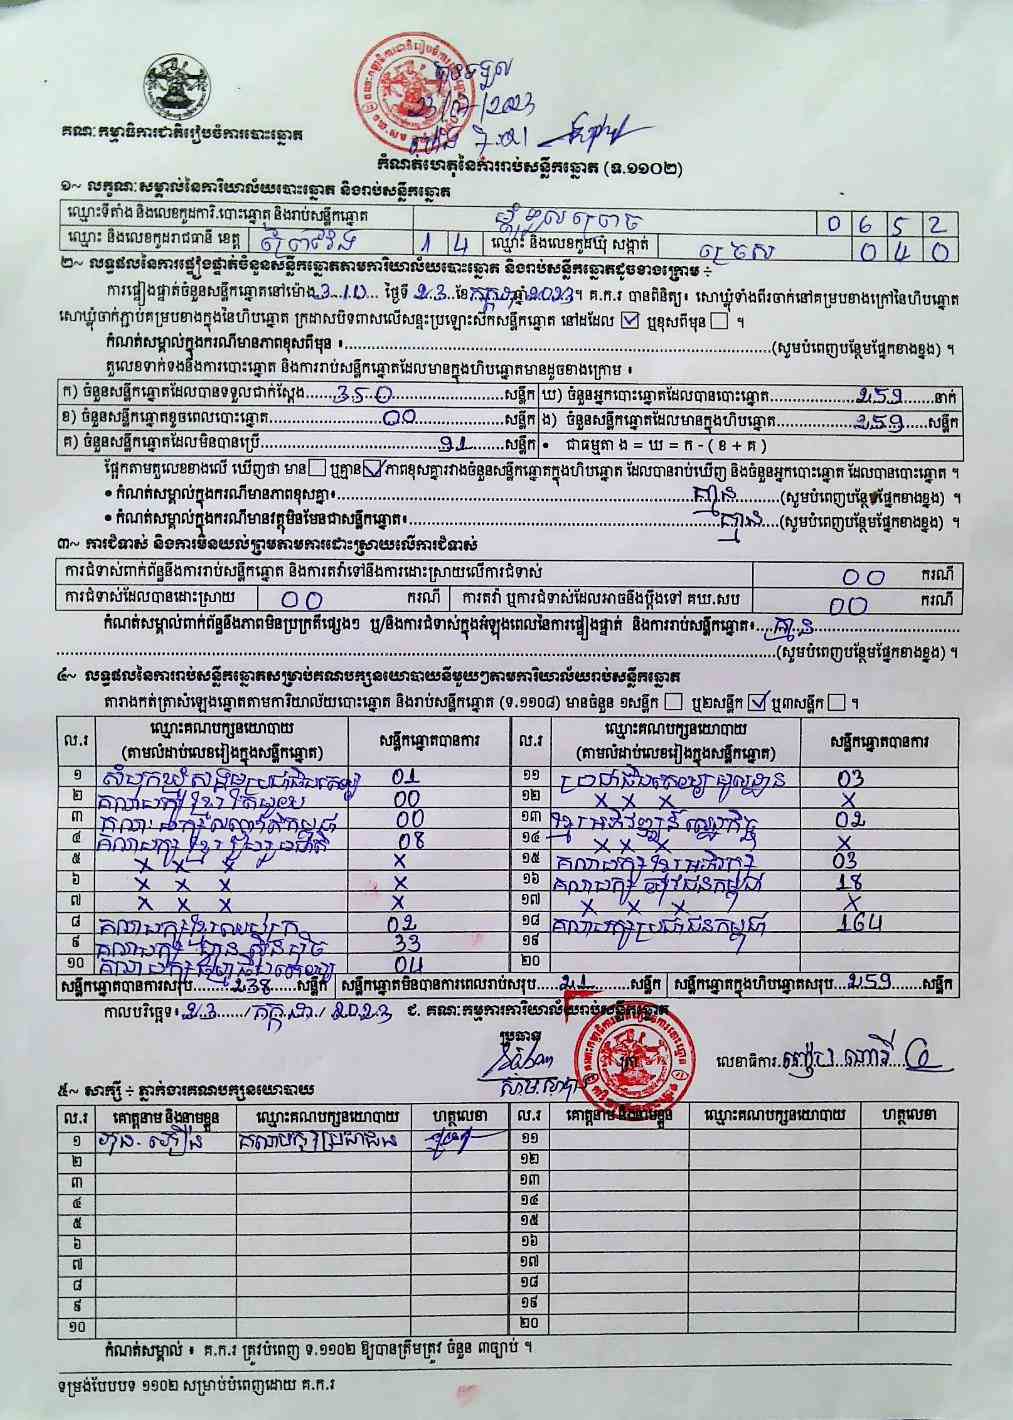 គណៈកម្មាធិការជាតិរៀបចំការបោះឆ្នោត
បានទទួល
23/7/2023
កំណត់ហេតុនៃការរាប់សន្លឹកឆ្នោត (ទ.១១០២)
១~ លក្ខណៈសម្គាល់នៃការិយាល័យបោះឆ្នោត និងរាប់សន្លឹកឆ្នោត
ឈ្មោះទីតាំង និងលេខកូដការិ.បោះឆ្នោត និងរាប់សន្លឹកឆ្នោត 0 6 5 2
ឈ្មោះ និងលេខកូដរាជធានី ខេត្ត ព្រៃវែង 1 4 ឈ្មោះ និងលេខកូដឃុំ សង្កាត់ 0 4 0
២~ លទ្ធផលនៃការផ្ទៀងផ្ទាត់ចំនួនសន្លឹកឆ្នោតតាមការិយាល័យបោះឆ្នោត និងរាប់សន្លឹកឆ្នោតដូចខាងក្រោម ÷
ការផ្ទៀងផ្ទាត់ចំនួនសន្លឹកឆ្នោតនៅម៉ោង 3:10 ថ្ងៃទី 23 ខែ កក្កដា ឆ្នាំ 2023 ។ គ.ក.រ បានពិនិត្យ៖ សោឃ្លុំទាំងពីរចាក់នៅគម្របខាងក្រៅនៃហិបឆ្នោត
សោឃ្លុំចាក់ភ្ជាប់គម្របខាងក្នុងនៃហិបឆ្នោត ក្រដាសបិទពាសលើសន្ទះប្រឡោះស៊កសន្លឹកឆ្នោត នៅដដែល ☑ ឬខុសពីមុន ☐ ។
កំណត់សម្គាល់ក្នុងករណីមានភាពខុសពីមុន ៖ (សូមបំពេញបន្ថែមផ្នែកខាងខ្នង) ។
តួលេខទាក់ទងនឹងការបោះឆ្នោត និងការរាប់សន្លឹកឆ្នោតដែលមានក្នុងហិបឆ្នោតមានដូចខាងក្រោម ៖
ក) ចំនួនសន្លឹកឆ្នោតដែលបានទទួលជាក់ស្តែង 350 សន្លឹក ឃ) ចំនួនអ្នកបោះឆ្នោតដែលបានបោះឆ្នោត 259 នាក់
ខ) ចំនួនសន្លឹកឆ្នោតខូចពេលបោះឆ្នោត 00 សន្លឹក ង) ចំនួនសន្លឹកឆ្នោតដែលមានក្នុងហិបឆ្នោត 259 សន្លឹក
គ) ចំនួនសន្លឹកឆ្នោតដែលមិនបានប្រើ 91 សន្លឹក • ជាធម្មតា ង = ឃ = ក - ( ខ + គ )
ផ្អែកតាមតួលេខខាងលើ ឃើញថា មាន ☐ ឬគ្មាន ☑ ភាពខុសគ្នារវាងចំនួនសន្លឹកឆ្នោតក្នុងហិបឆ្នោត ដែលបានរាប់ឃើញ និងចំនួនអ្នកបោះឆ្នោត ដែលបានបោះឆ្នោត ។
• កំណត់សម្គាល់ក្នុងករណីមានភាពខុសគ្នា៖ គ្មាន (សូមបំពេញបន្ថែមផ្នែកខាងខ្នង) ។
• កំណត់សម្គាល់ក្នុងករណីមានវត្ថុមិនមែនជាសន្លឹកឆ្នោត៖ គ្មាន (សូមបំពេញបន្ថែមផ្នែកខាងខ្នង) ។
៣~ ការជំទាស់ និងការមិនយល់ព្រមតាមការដោះស្រាយលើការជំទាស់
ការជំទាស់ពាក់ព័ន្ធនឹងការរាប់សន្លឹកឆ្នោត និងការតវ៉ាទៅនឹងការដោះស្រាយលើការជំទាស់ 00 ករណី
ការជំទាស់ដែលបានដោះស្រាយ 00 ករណី ការតវ៉ា ឬការជំទាស់ដែលអាចនឹងប្តឹងទៅ គឃ.សប 00 ករណី
កំណត់សម្គាល់ពាក់ព័ន្ធនឹងភាពមិនប្រក្រតីផ្សេងៗ ឬ/និងការជំទាស់ក្នុងអំឡុងពេលនៃការផ្ទៀងផ្ទាត់ និងការរាប់សន្លឹកឆ្នោត៖ គ្មាន
(សូមបំពេញបន្ថែមផ្នែកខាងខ្នង) ។
៤~ លទ្ធផលនៃការរាប់សន្លឹកឆ្នោតសម្រាប់គណបក្សនយោបាយនីមួយៗតាមការិយាល័យរាប់សន្លឹកឆ្នោត
តារាងកត់ត្រាសំឡេងឆ្នោតតាមការិយាល័យបោះឆ្នោត និងរាប់សន្លឹកឆ្នោត (ទ.១១០៨) មានចំនួន ១សន្លឹក ☐ ឬ២សន្លឹក ☑ ឬ៣សន្លឹក ☐ ។
ល.រ ឈ្មោះគណបក្សនយោបាយ (តាមលំដាប់លេខរៀងក្នុងសន្លឹកឆ្នោត) សន្លឹកឆ្នោតបានការ ល.រ ឈ្មោះគណបក្សនយោបាយ (តាមលំដាប់លេខរៀងក្នុងសន្លឹកឆ្នោត) សន្លឹកឆ្នោតបានការ
១ សំបុកឃ្មុំសង្គមប្រជាធិបតេយ្យ 01 ១១ ប្រជាធិបតេយ្យមូលដ្ឋាន 03
២ គណបក្សខ្មែរតែមួយ 00 ១២ x x x x
៣ គណបក្ស 00 ១៣ ខ្មែរអភិវឌ្ឍន៍សេដ្ឋកិច្ច 02
៤ គណបក្សខ្មែររួបរួមជាតិ 08 ១៤ x x x x
៥ x x x x ១៥ គណបក្សខ្មែរអភិរក្ស 03
៦ x x x x ១៦ គណបក្សយុវជនកម្ពុជា 18
៧ x x x x ១៧ x x x x
៨ គណបក្ស 02 ១៨ គណបក្សប្រជាជនកម្ពុជា 164
៩ គណបក្សហ៊្វុនស៊ិនប៉ិច 33 ១៩
១០ គណបក្ស 04 ២០
សន្លឹកឆ្នោតបានការសរុប 238 សន្លឹក សន្លឹកឆ្នោតមិនបានការពេលរាប់សរុប 21 សន្លឹក សន្លឹកឆ្នោតក្នុងហិបឆ្នោតសរុប 259 សន្លឹក
កាលបរិច្ឆេទ៖ 23 / កក្កដា / 2023 ជ. គណៈកម្មការការិយាល័យរាប់សន្លឹកឆ្នោត
ប្រធាន
លេខាធិការ
៥~ សាក្សី ÷ ភ្នាក់ងារគណបក្សនយោបាយ
ល.រ គោត្តនាម និងនាមខ្លួន ឈ្មោះគណបក្សនយោបាយ ហត្ថលេខា ល.រ គោត្តនាម និងនាមខ្លួន ឈ្មោះគណបក្សនយោបាយ ហត្ថលេខា
១ គណបក្សប្រជាជន ១១
២ ១២
៣ ១៣
៤ ១៤
៥ ១៥
៦ ១៦
៧ ១៧
៨ ១៨
៩ ១៩
១០ ២០
កំណត់សម្គាល់ ៖ គ.ក.រ ត្រូវបំពេញ ទ.១១០២ ឱ្យបានត្រឹមត្រូវ ចំនួន ៣ច្បាប់ ។
ទម្រង់បែបបទ ១១០២ សម្រាប់បំពេញដោយ គ.ក.រ